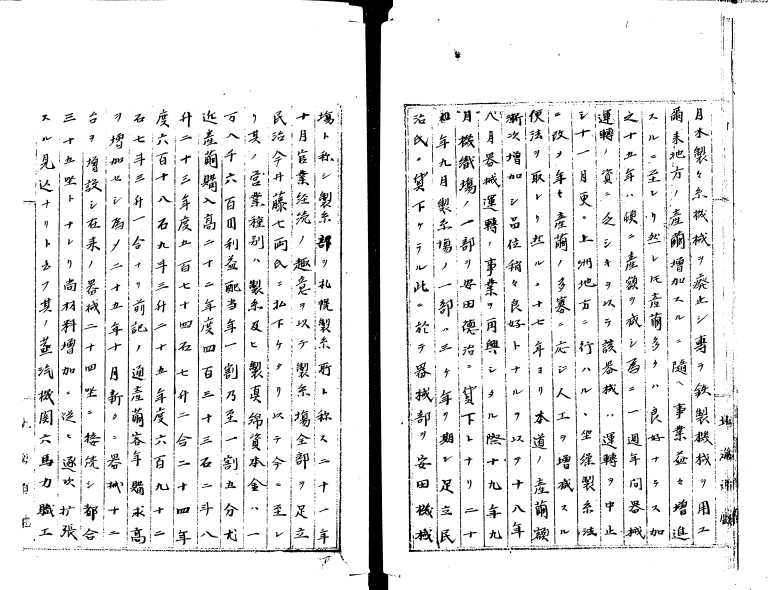 月木製々糸機械ヲ廃止シ専ラ鉄製機械ヲ用エ
爾来地方ノ産繭増加スルニ随ヘ事業益々増進
スルニ至レリ然レ圧産繭多クハ良好ナラス加
之十五年ハ頓ニ産額ヲ減シ為ニ一週年間器械
運轉ノ資ニ乏シキヲ以テ該器械ハ運轉ヲ中止
シ十一月更ニ上洲地方ニ行ハルヽ坐繰製糸法
ニ改メ年々産繭ノ多寡ニ応シ人工ヲ増減スル
便法ヲ取レリ然ルニ十七年ヨリ本道ノ産繭額
漸次増加シ品位稍々良好トナルヲ以テ十八年
八月器械運轉ノ事業ヲ再興シタル際十九年九
月機織場ノ一部ヲ安田德治ニ貸下トナリ二十
年九月製糸場ノ一部ハ三ケ年ヲ期シ足立民
治氏ニ貸下ケラル此ニ於テ器械部ヲ安田機械
場ト称シ製糸部ヲ札幌製糸所ト称ス二十一年
十月官業経済ノ趣意ヲ以テ製糸場全部ヲ足立
民治今井藤七両氏ニ払下ケタリ以テ今ニ至レ
リ其ノ営業種別ハ製糸及ヒ製真綿資本金ハ一
万八千六百円利益配当年一割乃至一割五分尤
近産繭購入高二十二年度四百三十三石二斗八
升二十三年度五百七十四石七升二合二十四年
度六百十八石九斗三升二十五年度六百九十二
石七斗三升一合ナリ前記ノ通産繭客年購求高
ヲ増加セシ為メ二十五年十月新タニ器械十二
台ヲ増設シ在来ノ器械二十四坐ニ接続シ都合
三十五坐トナレリ尚材料増加ニ従ヒ逐次拡張
スル見込ナリト云フ其ノ蒸汽機関六馬力職工